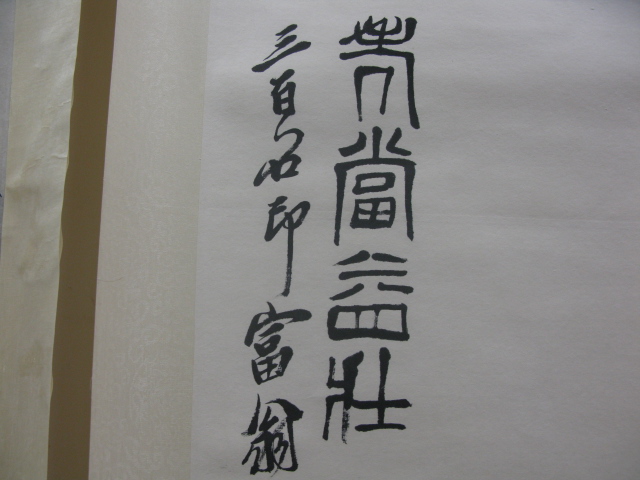 老當益壯
三百石印富翁